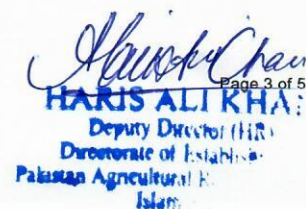 Page 3 of 5
HARIS ALI KHA
Deputy Director (HR)
Directorate of Establish
Pakistan Agricultural R
Islam